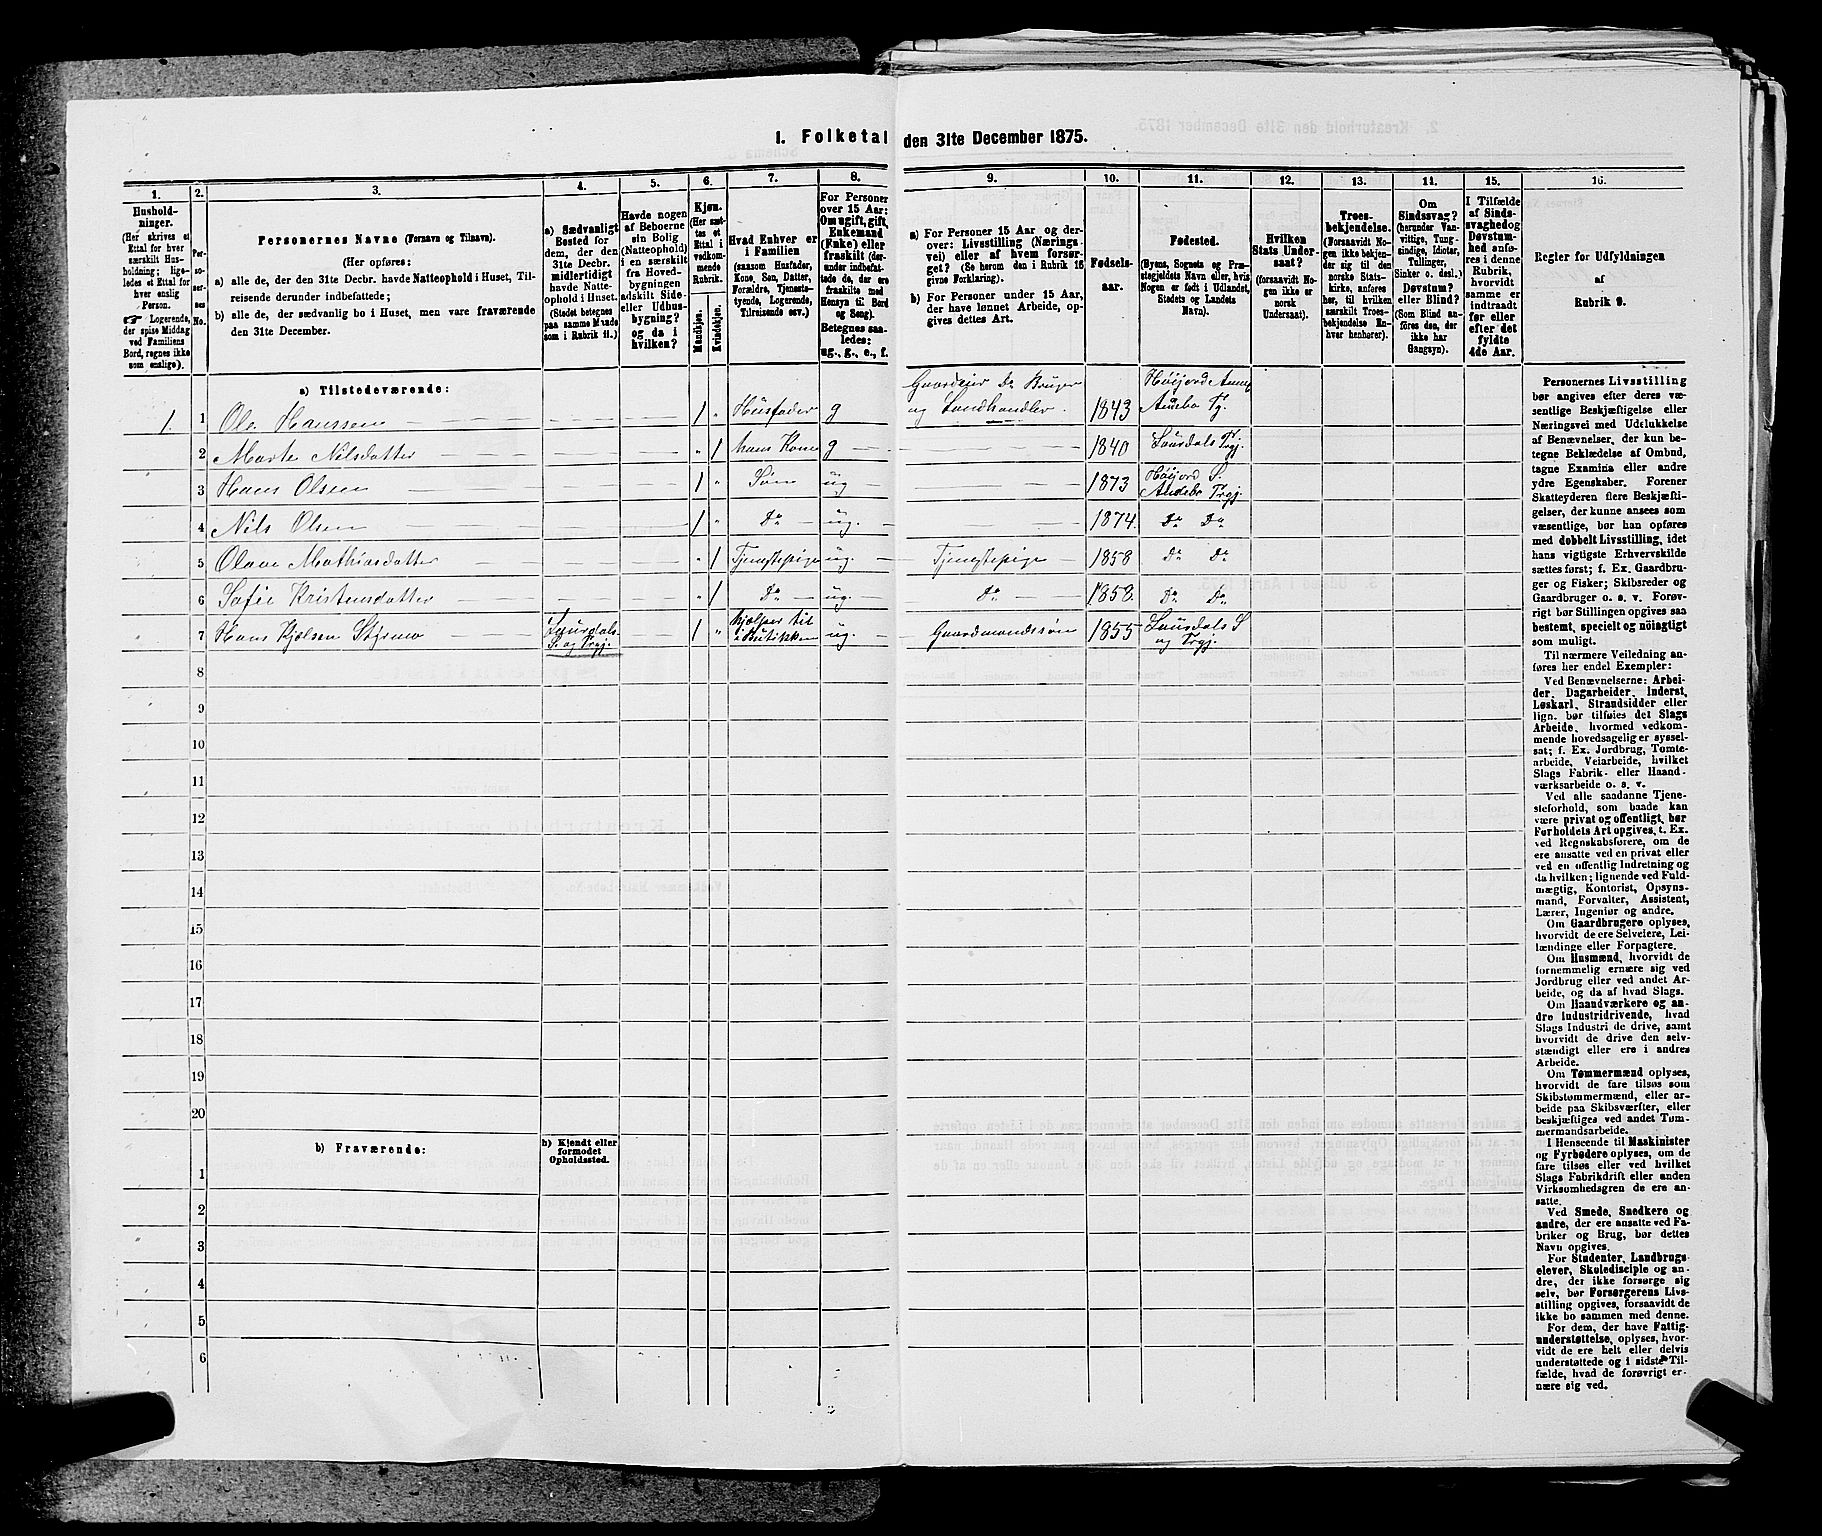 1. Folketal den 31te December 1875.
1.
2.
3.
4.
5.
6.
7.
8.
9.
10.
11.
12.
13.
14.
15.
16.
Hushold-
ninger.
(Her skrives et
Ettal for hver
særskilt Hus-
holdning; lige-
ledes et Ettal for
hver enslig
Person.
☞ Logerende,
der spise Middag
ved Familiens
Bord, regnes ikke
som enslige).
Per-
so-
ner-
nes
No.
Personernes Navne (Fornavn og Tilnavn).
(Her opføres:
a) alle de, der den 31te Decbr. havde Natteophold i Huset, Til-
reisende derunder indbefattede;
b) alle de, der sædvanlig bo i Huset, men vare fraværende
den 31te December.
a) Sædvanligt
Bosted for
dem, der den
31te Decbr.
midlertidigt
havde Natte-
ophold i Huset.
(Stedet betegnes
paa samme Maade
som i Rubrik 11.)
Havde nogen
af Beboerne
sin Bolig
(Natteophold)
i en særskilt
fra Hoved-
bygningen
adskilt Side-
eller Udhus-
bygning?
og da i
hvilken?
Kjøn.
(Her sæt-
tes et
Ettal i
vedkom-
mende
Rubrik.
Mandkjøn.
Kvindekjøn.
Hvad Enhver er
i Familien
(saasom Husfader,
Kone, Søn, Datter,
Forældre, Tjeneste-
tyende, Logerende,
Tilreisende osv.)
For Personer
over 15 Aar:
Om ugift, gift,
Enkemand
(Enke) eller
fraskilt (der-
under indbefat-
tede de, der ere
fraskilte med
Hensyn til Bord
og Seng).
Betegnes saa-
ledes:
ug., g., e., f.
a) For Personer 15 Aar og der-
over: Livsstilling (Næring-
vei) eller af hvem forsør-
get? (Se herom den i Rubrik 16
givne Forklaring).
b) For Personer under 15 Aar,
der have lønnet Arbeide, op-
gives dettes Art.
Fødsels-
aar.
Fødested.
(Byens, Sognets og Præ-
stegjeldets Navn eller, hvis
Nogen er født i Udlandet,
Stedets og Landets
Navn).
Hvilken
Stats Under-
saat?
(forsaavidt No-
gen ikke er
norsk
Undersaat).
Troes-
bekjendelse.
(Forsaavidt No-
gen ikke bekjen-
der sig til den
norske Stats-
kirke, anføres
her, til hvilken
særskilt Troes-
bekjendelse En-
hver henhører).
Om
Sindssvag?
(herunder Van-
vittige, Tung-
sindige, Idioter,
Tullinger,
Sinker o. desl.)
Døvstum?
eller Blind?
(Som Blind an-
føres den, der
ikke har
Gangsyn).
I Tilfælde
af Sinds-
svaghed og
Døvstum-
hed anfø-
res i denne
Rubrik,
hvorvidt
samme er
indtraadt
før eller
efter det
fyldte
4de Aar.
Regler for Udfyldningen
af
Rubrik 9.
a) Tilstedeværende:
1 1 Ole Hanssen — — — 1 " Husfader g Gaardeier Do Bruger og Landhandler. 1843 Høijord Annex Andebo Pg.
2 Marte Nilsdatter — — — " 1 hans Kone g — — 1840 Laurdals Prgj.
3 Hans Olsen — — — 1 " Søn ug — — 1873 Høijord S. Andebo Prgj.
4 Nils Olsen — — — 1 " Do — ug. — — 1874. Do Do
5 Olave Mathiasdatter — — — " 1 Tjenestepige ug. Tjenestepige — 1858 Do Do
6 Sofie Kristensdatter — — — " 1 Do — ug. — Do — 1858. Do Do
7 Hans Kjelsen Laurdals S. og Prgj. — 1 " hjelper til i Butikken ug. — Gaardmandssøn 1855 Laurdals S og Prgj.
8
9
10
11
12
13
14
15
16
17
18
19
20
b) Fraværende:
b) Kjendt eller
formodet
Opholdssted.
1
2
3
4
5
6
Personernes Livsstilling
bør angives efter deres væ-
sentlige Beskjæftigelse eller
Næringsvei med Udelukkelse
af Benævnelser, der kun be-
tegne Beklædelse af Ombud,
tagne Examina eller andre
ydre Egenskaber. Forener
Skatteyderen flere Beskjæfti-
gelser, der kunne ansees som
væsentlige, bør han opføres
med dobbelt Livsstilling, idet
hans vigtigste Erhvervskilde
sættes først; f. Ex. Gaardbru-
ger og Fisker; Skibsreder og
Gaardbruger o. s. v. Forøv-
rigt bør Stillingen opgives saa
bestemt, specielt og nøiagtigt
som muligt.
Til nærmere Veiledning an-
føres her endel Exempler:
Ved Benævnelserne: Arbei-
der, Dagarbeider, Inderst,
Løskarl, Strandsidder eller
lign. bør tilføies det Slags
Arbeide, hvormed vedkom-
mende hovedsagelig er syssel-
sat; f. Ex. Jordbrug, Tomte-
arbeide, Veiarbeide, hvilket
Slags Fabrik- eller Haand-
værksarbeide o. s. v.
Ved alle saadanne Tjene-
steforhold, som baade kan
være privat og offentligt, bør
Forholdets Art opgives, t. Ex.
ved Regnskabsførere, om de
ere ansatte ved en privat eller
ved en offentlig Indretning og
da hvilken; lignende ved Fuld-
mægtig, Kontorist, Opsyns-
mand, Forvalter, Assistent,
Lærer, Ingeniør og andre.
Om Gaardbrugere oplyses,
hvorvidt de ere Selveiere, Lei-
lændinge eller Forpagtere.
Om Husmænd, hvorvidt de
fornemmelig ernære sig ved
Jordbrug eller ved andet Ar-
beide, og da af hvad Slags.
Om Haandværkere og an-
dre Industridrivende, hvad
Slags Industri de drive, samt
hvorvidt de drive den selv-
stændigt eller ere i andres
Arbeide.
Om Tømmermænd oplyses,
hvorvidt de fare tilsøs som
Skibstømmermænd, eller ar-
beide paa Skibsværfter, eller
beskjæftiges ved andet Tøm-
mermandsarbeide.
I Henseende til Maskinister
og Fyrbødere oplyses, om de
fare tilsøs eller ved hvilket
Slags Fabrikdrift eller anden
Virksomhedsgren de ere an-
satte.
Ved Smede, Snedkere og
andre, der ere ansatte ved Fa-
briker og Brug, bør dettes
Navn opgives.
For Studenter, Landbrugs-
elever, Skoledisciple og an-
dre, der ikke forsørge sig
selv, bør Forsørgerens Livs-
stilling opgives, forsaavidt de
ikke bo sammen med denne.
For dem, der have Fattig-
understøttelse, oplyses, hvor-
vidt de ere helt eller delvis
understøttede og i sidste Til-
fælde, hvad de forøvrigt er-
nære sig ved.